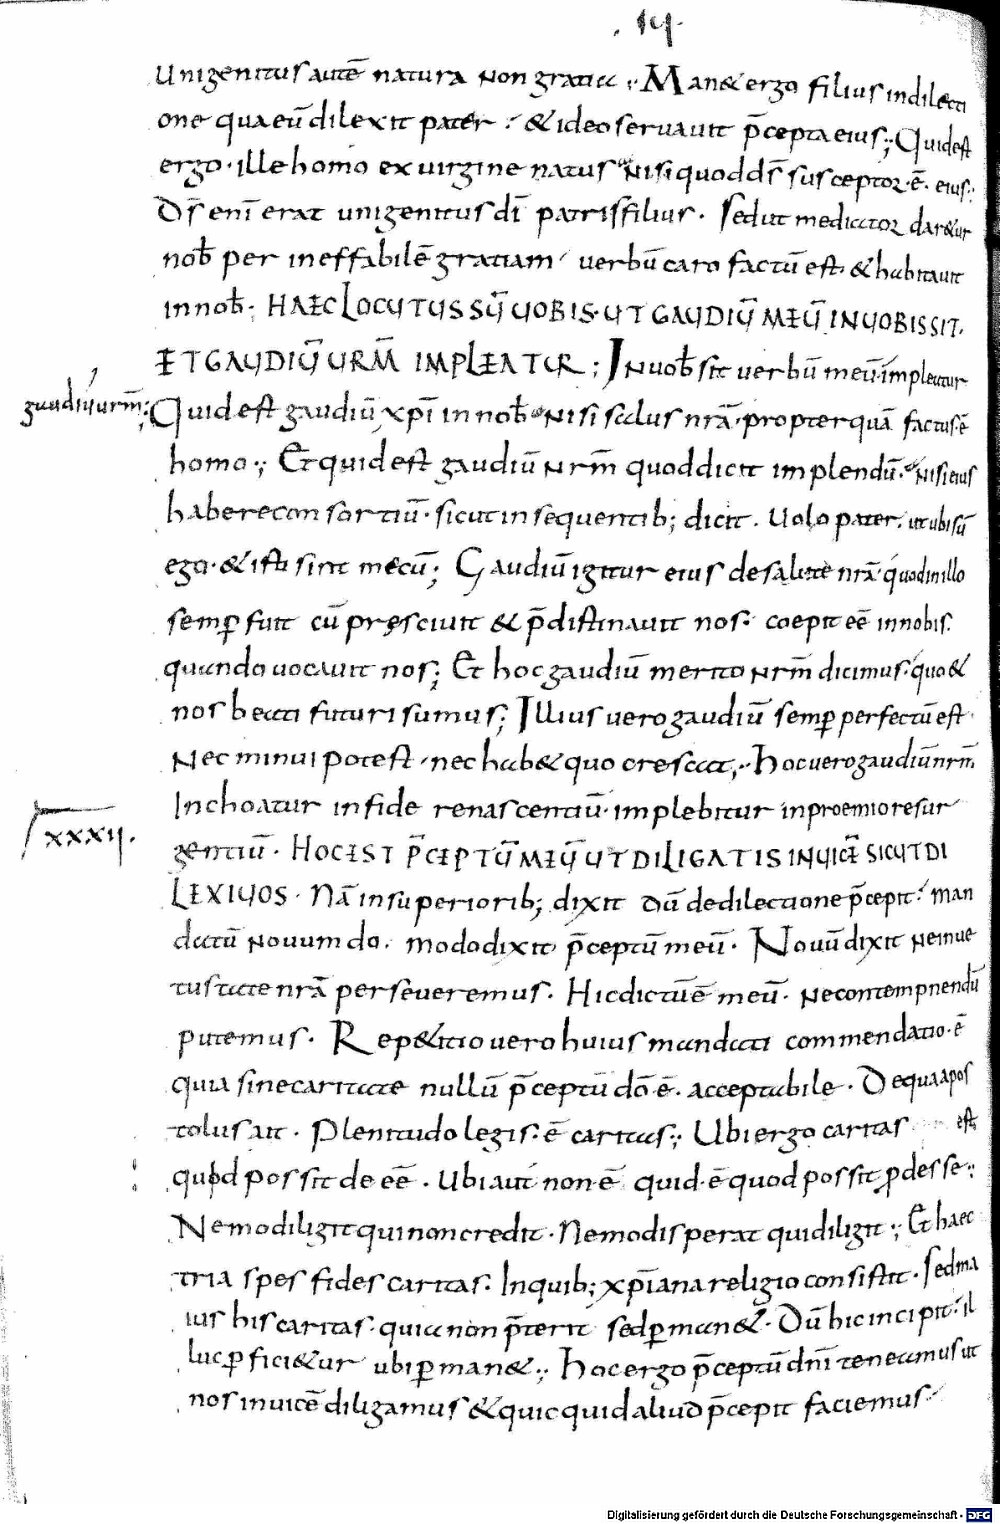 .14.
unigenitus autē natura non gratia ; Man& ergo filius indilecti
one qua eū dilexit pater . & ideo servavit p̄cepta eius ; Quid est
ergo . ille homo ex virgine natus nisi quod ds̄ susceptor . ē . eius ;
Ds̄ enī erat unigenitus dī patris filius . sed ut mediator dar&ur
nob̄ per ineffabilē gratiam verbū caro factū est & habitavit
innob̄ . HAEC LOCUTUS SŪ UOBIS . UT GAUDIŪ MEŪ IN UOBIS SIT .
ET GAUDIŪ URM̄ IMPLEATUR ; In uob̄ sit uerbū meū . impleatur
gaudiū urm̄ ;
Quid est gaudiū xp̄i in nob̄ nisi salus nrā . propter quā factus . ē
homo ; Et quid est gaudiū nrm̄ quod dicit implendū . nisi eius
habere consortiū . sicut in sequentib; dicit . Uolo pater . ut ubi sū
ego . & isti sint mecū ; Gaudiū igitur eius de salute nrā . quod in illo
semp̱ fuit cū pręsciuit & p̄distinauit nos . coepit eē innobis .
quando uocauit nos ; Et hoc gaudiū merito nrm̄ dicimus . quo &
nos beati futuri sumus ; Illius uero gaudiū semp̱ perfectū est
nec minui potest . nec hab& quo crescat ; . Hoc uero gaudiū nrm̄
Inchoatur in fide renascentiū . implebitur in proemio resur
XXXII .
gentiū . HOC EST P̄CEPTŪ MEŪ UT DILIGATIS INUICĒ SICUT DI
LEXI UOS . Nā in superiorib; dixit dū de dilectione p̄cepit . man
datū nouum do . modo dixit p̄ceptū meū . Nouū dixit ne in ue
tustate nrā perseueremus . Hic dictū ē meū . ne contempnendū
putemus . Rep&itio uero huius mandati commendatio . ē
quia sine caritate nullū p̄ceptū dō . ē . acceptabile . De qua apos
tolus ait . Plenitudo legis . ē caritas ; Ubi ergo caritas est
quod possit de eē . Ubi aut non ē quid . ē quod possit p̱desse ;
Nemo diligit qui non credit . Nemo disperat qui diligit ; Et haec
tria spes fides caritas . Inquib; xp̄iana religio consistit . sed ma
ius his caritas . quia non p̄terit sed p̱man& . Dū hic incipit . il
luc p̱fici&ur ubi p̱man& ; Hoc ergo p̄ceptū dnī teneamus ut
nos inuicē diligamus & quicquid aliud p̄cepit faciemus .
Digitalisierung gefördert durch die Deutsche Forschungsgemeinschaft - DFG